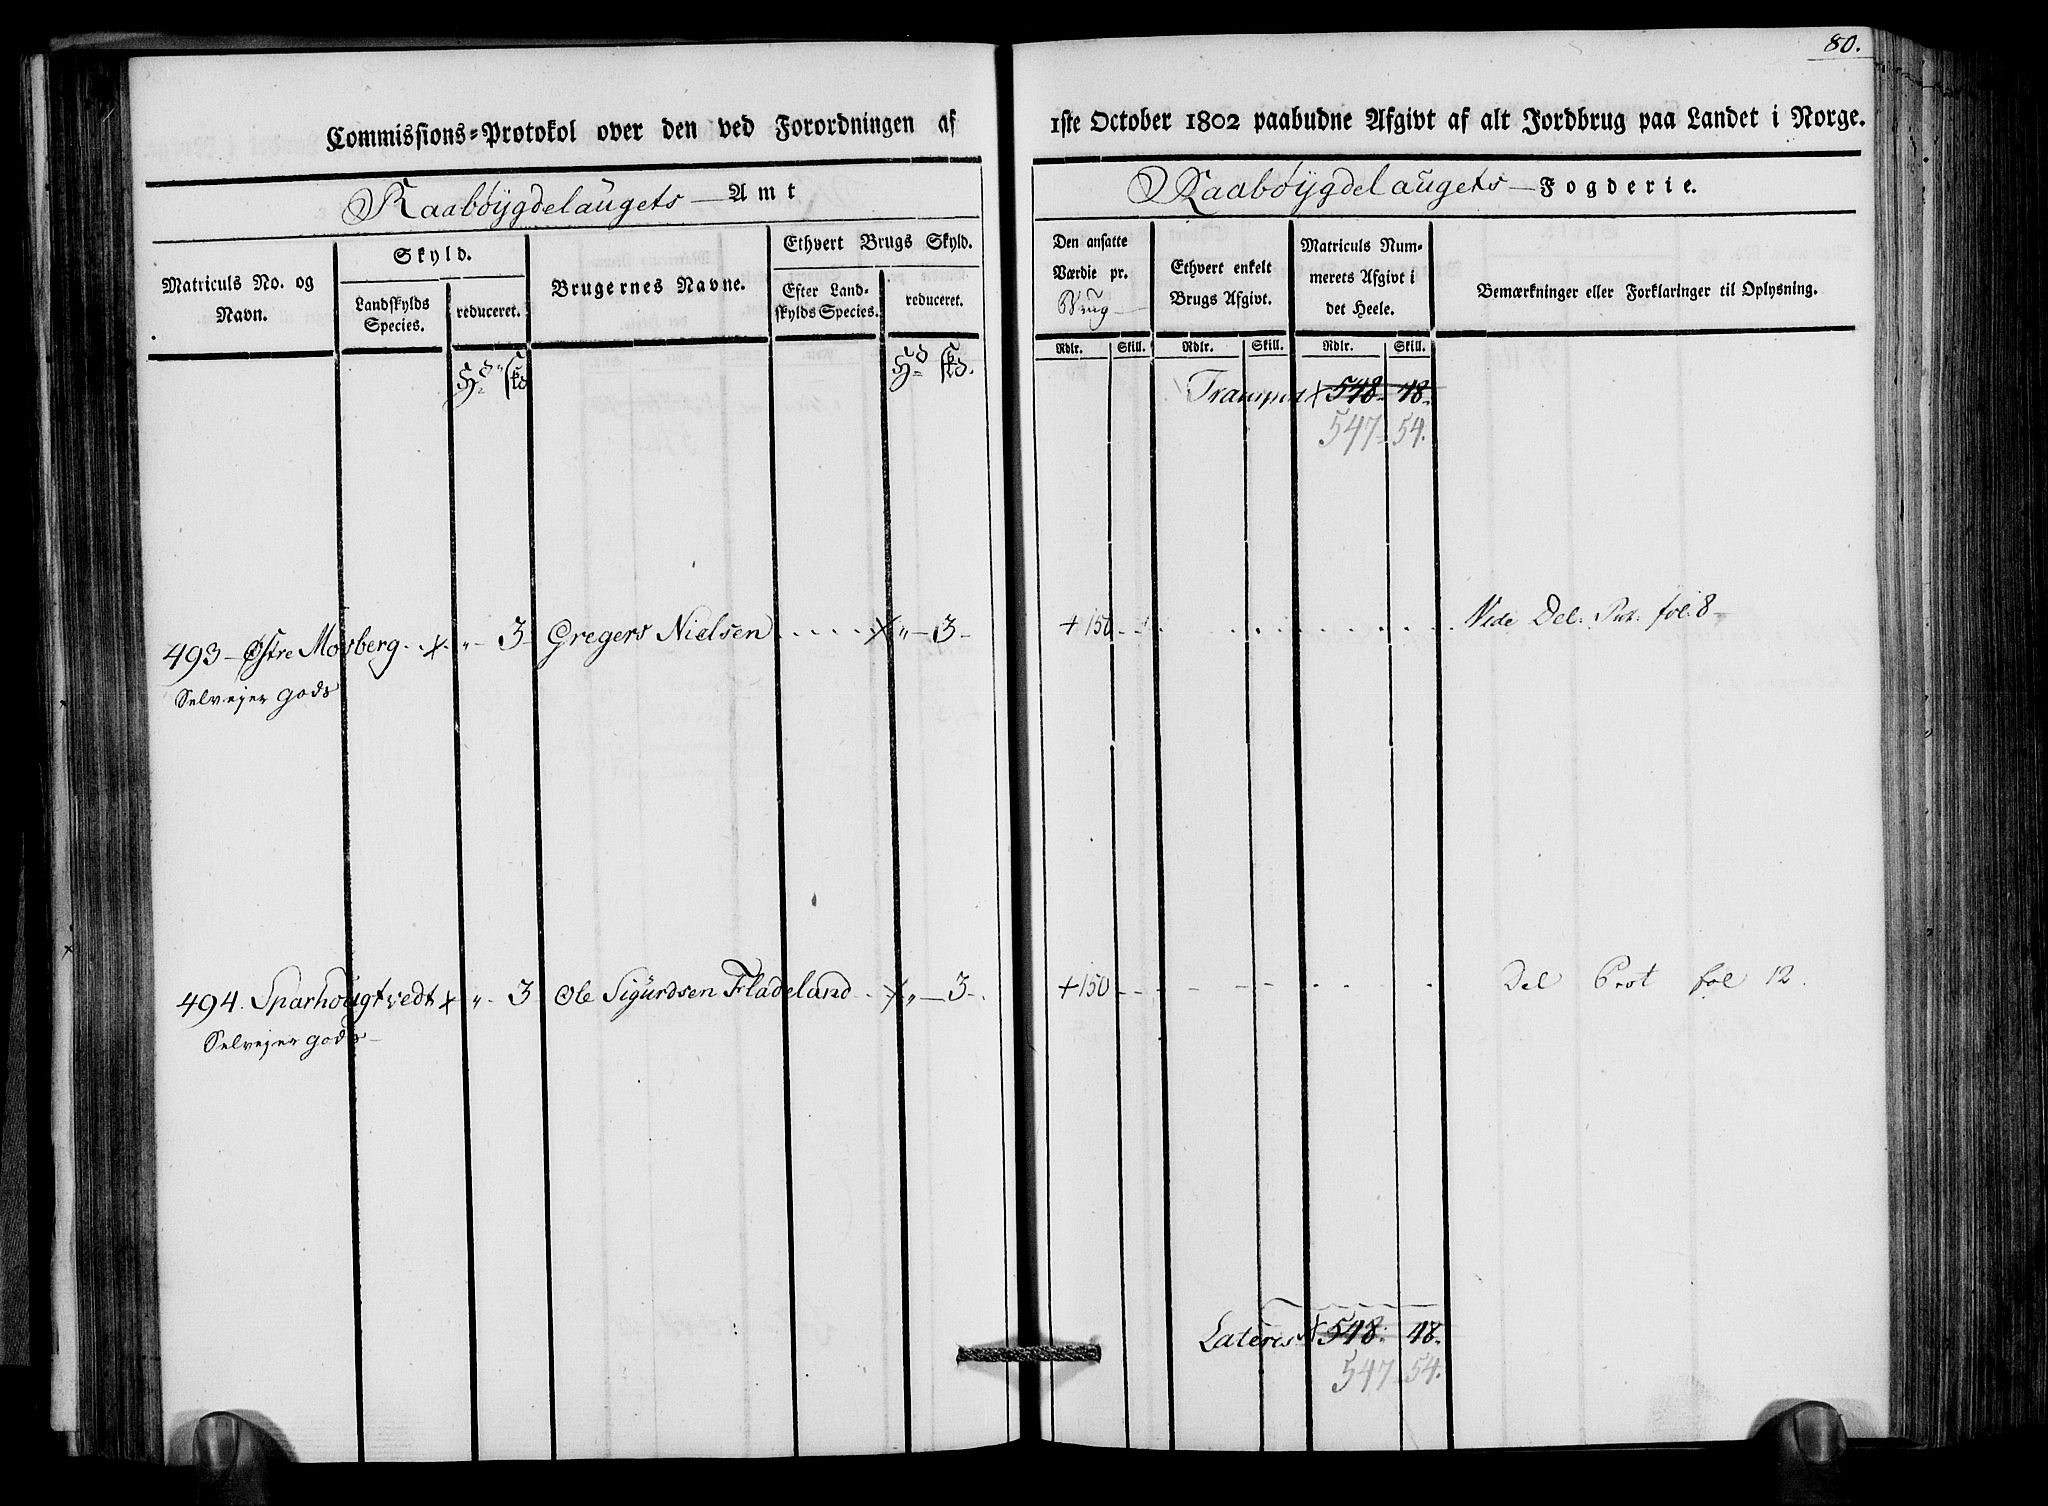 80.
Commissions-Protokol over den ved Forordningen af 1ste October 1802 paabudne Afgivt af alt Jordbrug paa Landet i Norge.
Raabøygdelaugets Amt
Raabøygdelaugets Fogderie.
Matriculs No. og Navn.
Skyld.
Landskylds Species.
reduceret.
Brugernes Navne.
Ethvert Brugs Skyld.
Efter Landskylds Species.
reduceret.
Den ansatte Værdie pr. Brug
Ethvert enkelt Brugs Afgivt.
Matriculs Nummerets Afgivt i det Heele.
Bemærkninger eller Forklaringer til Oplysning.
Rdlr. Skill. Rdlr. Skill. Rdlr. Skill.
Transport 548 48
547 54.
493 Østre Mosberg 3 Gregers Nielsen 3 150 Vide Del. Prt. fol. 8
Selvejer gods
494. Sparhougtvedt 3 Ole Sigurdsen Fladeland 3 150 Del Prot fol 12.
Selvejer gods
Lateris 548 48
547 54.